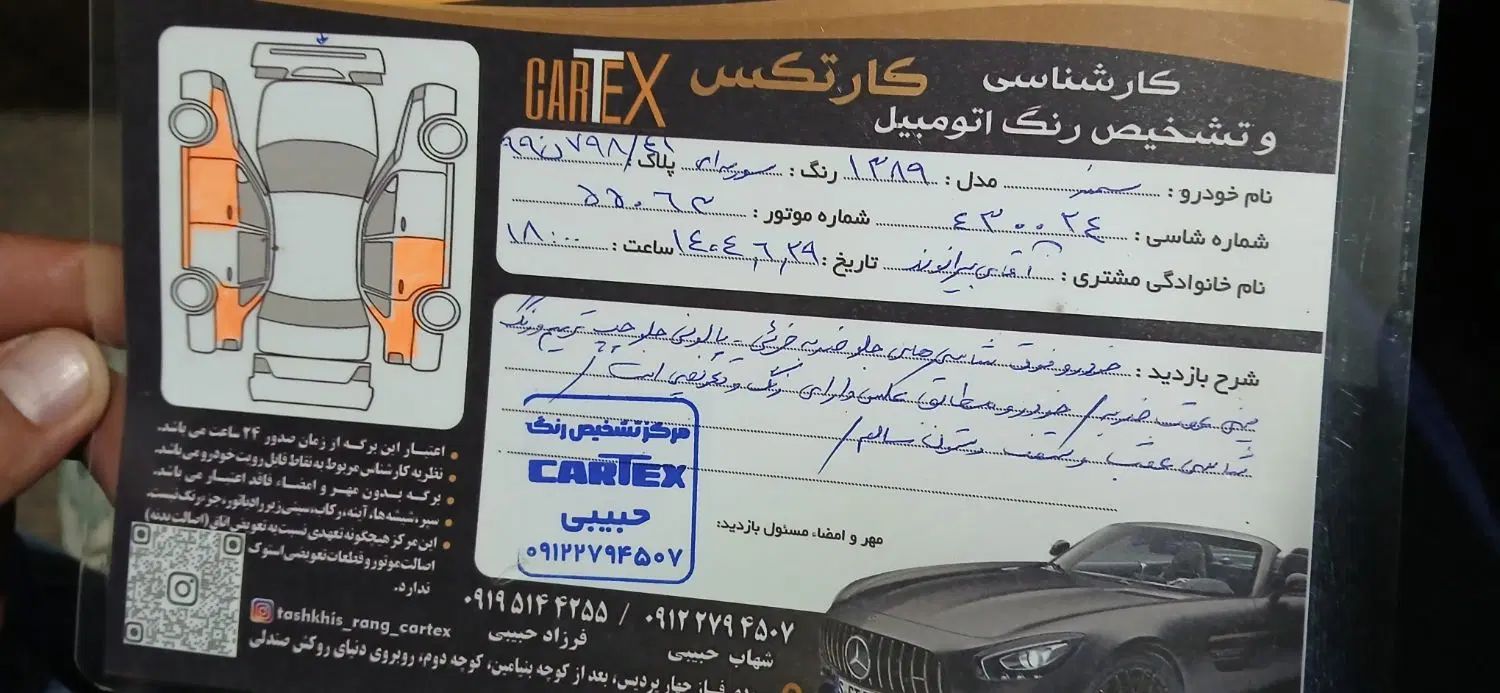 CARTEX کارتکس کارشناسی
و تشخیص رنگ اتومبیل
نام خودرو : سمند مدل : ۱۳۸۹ رنگ : سورمه‌ای پلاک :
شماره شاسی : ۴۳۰۰۲۴ شماره موتور : ۵۵۰۶۳
نام خانوادگی مشتری : آقای بیرانوند تاریخ : ۱۴۰۴,۶,۲۹ ساعت : ۱۸:۰۰
شرح بازدید : خودرو فوق شاسی های جلو ضربه جزئی - پالونی جلو چپ ترمیم و رنگ
عقب ضربه / خودرو مطابق عکس دارای رنگ و تعویض است /
شاسی عقب و سقف و ستون سالم /
مرکز تشخیص رنگ
CARTEX
حبیبی
۰۹۱۲۲۷۹۴۵۰۷
مهر و امضاء مسئول بازدید:
اعتبار این برگه از زمان صدور ۲۴ ساعت می باشد.
نظریه کارشناس مربوط به نقاط قابل رویت خودرو می باشد.
برگه بدون مهر و امضاء فاقد اعتبار می باشد.
سپر، شیشه ها، آینه، رکاب، سینی زیر رادیاتور، جزء رنگ نیست.
این مرکز هیچگونه تعهدی نسبت به تعویض اتاق (اصالت بدنه)
اصالت موتور و قطعات تعویضی استوک
ندارد.
tashkhis_rang_cartex
۰۹۱۹ ۵۱۴ ۴۲۵۵ / ۰۹۱۲ ۲۷۹ ۴۵۰۷
فرزاد حبیبی شهاب حبیبی
فاز چهار پردیس، بعد از کوچه بنیامین، کوچه دوم، روبروی دنیای روکش صندلی